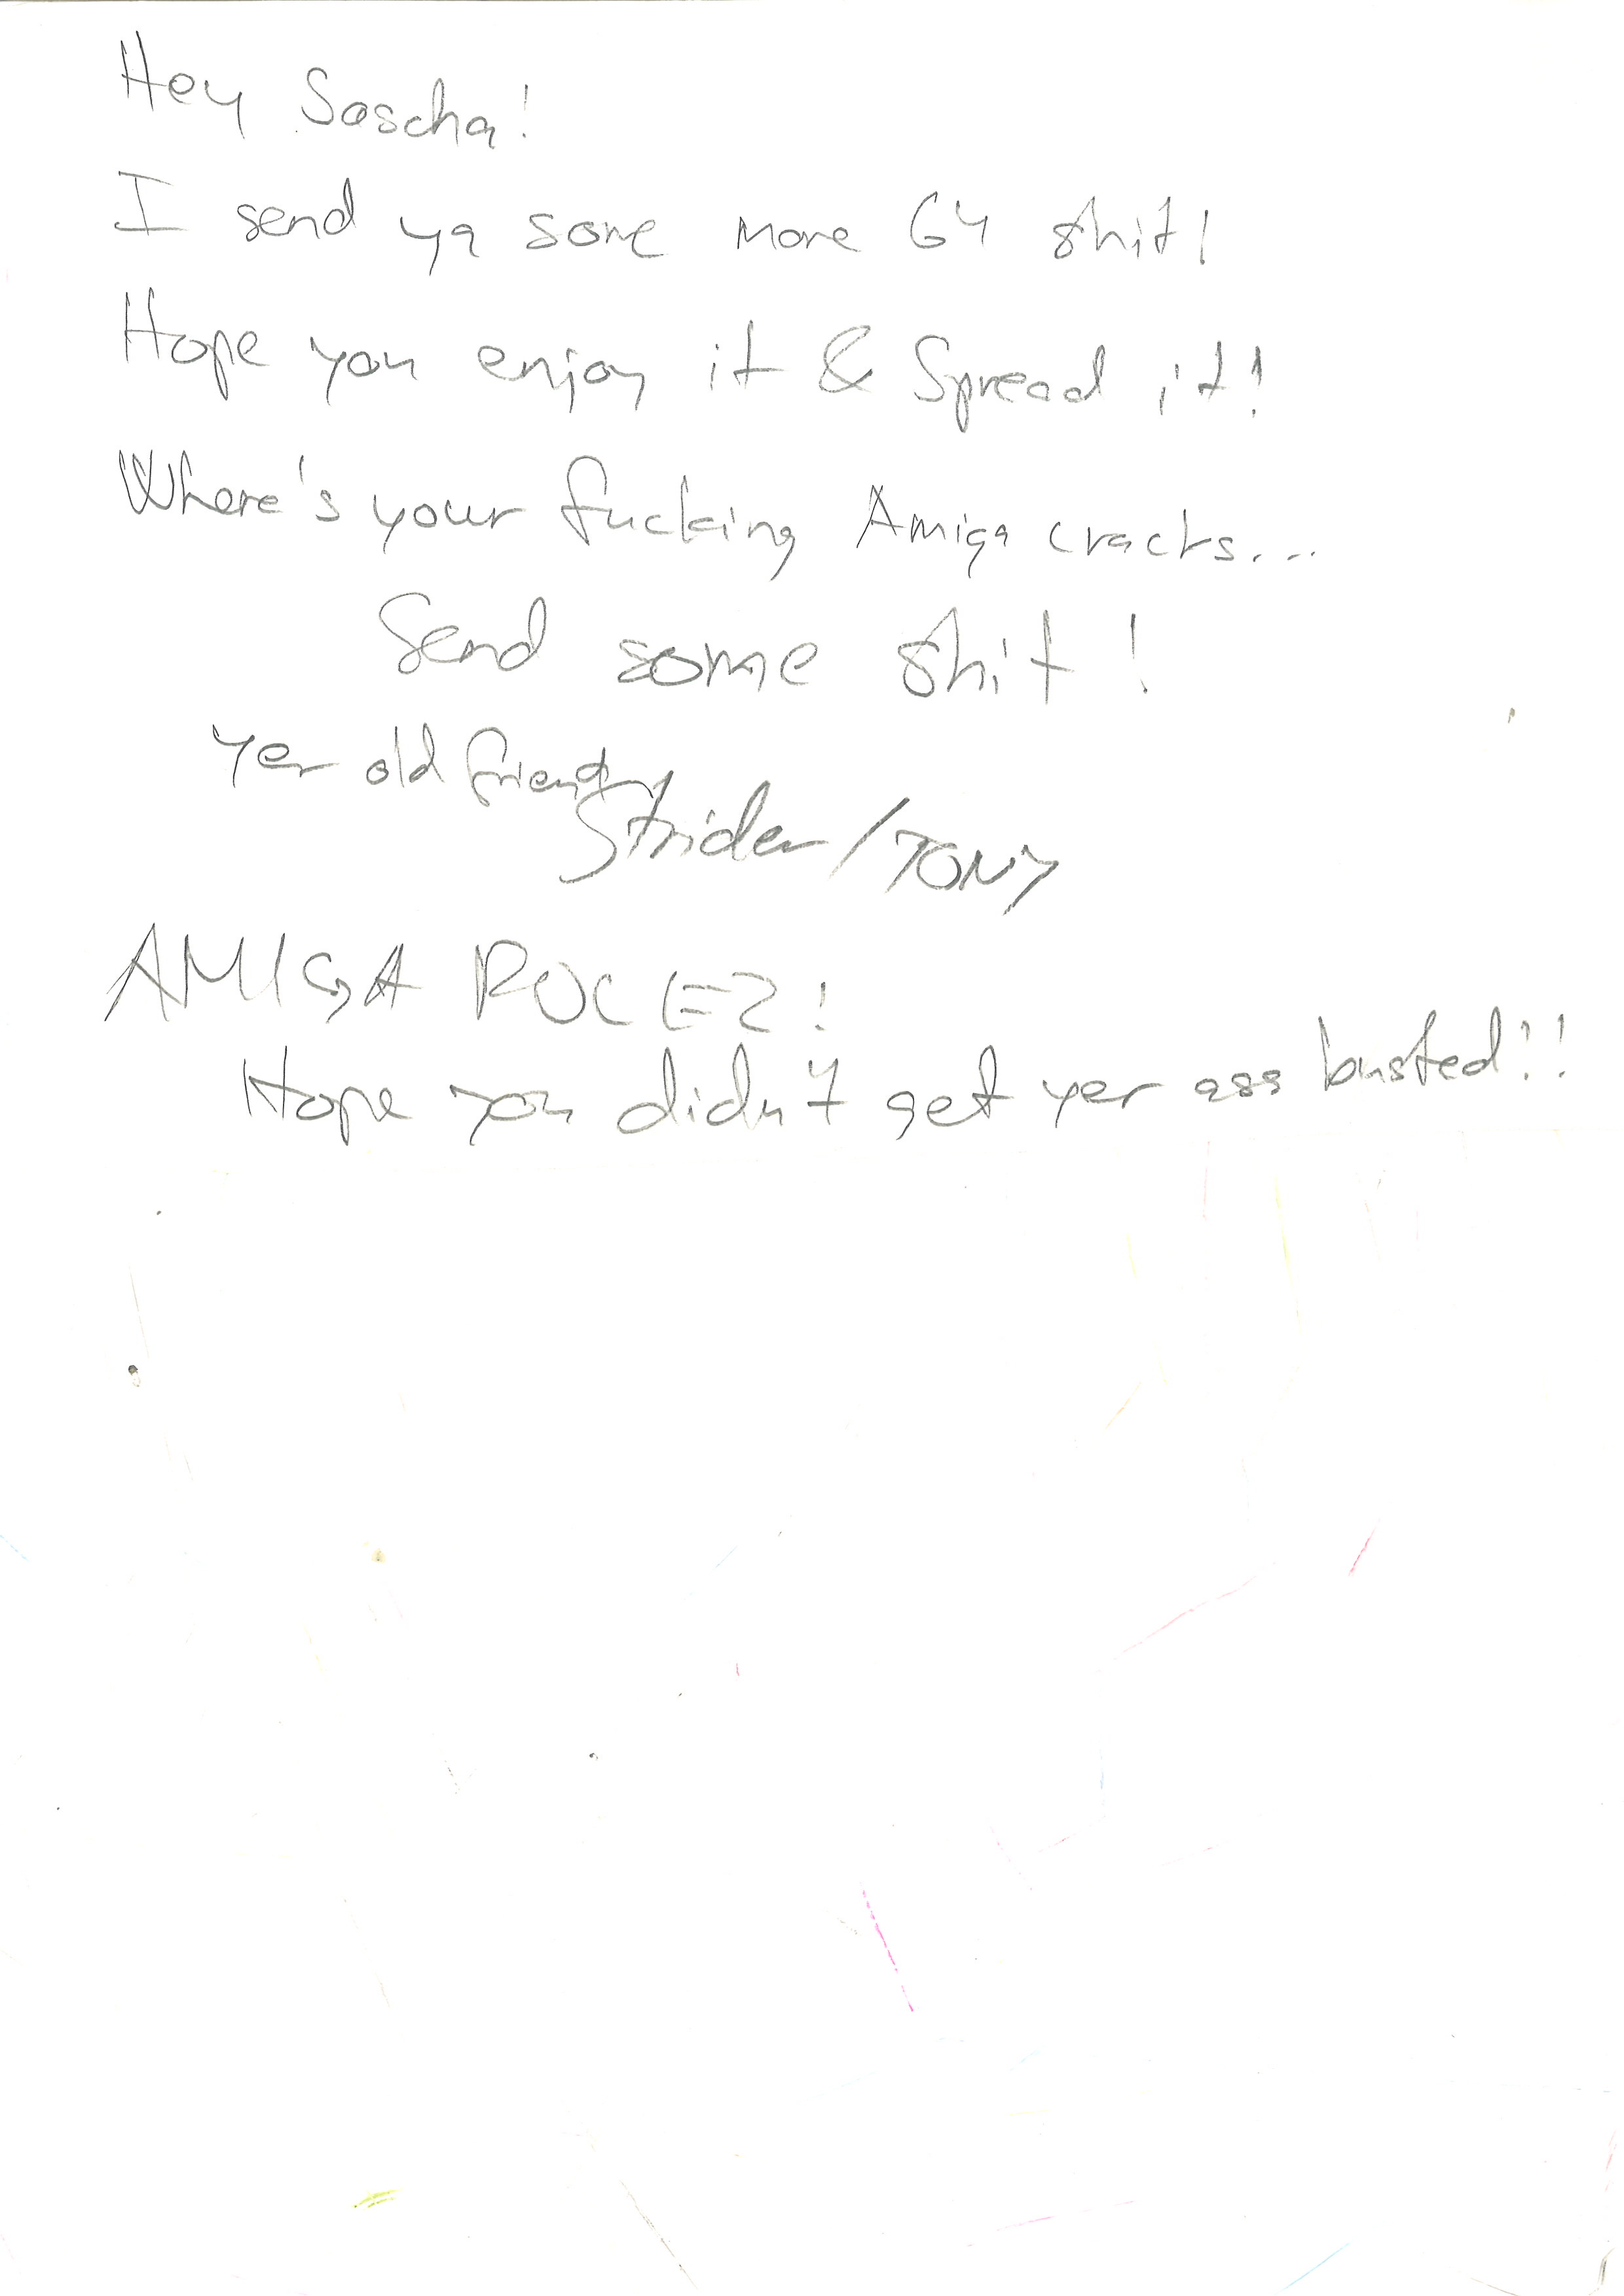 Hey Sascha!
I send ya some more 64 shit!
Hope you enjoy it & Spread it!
Where's your fucking Amiga cracks...
Send some shit!
Yer old friend
Strider/TONY
AMIGA RULEZ!
Hope you didn't get yer ass busted!!